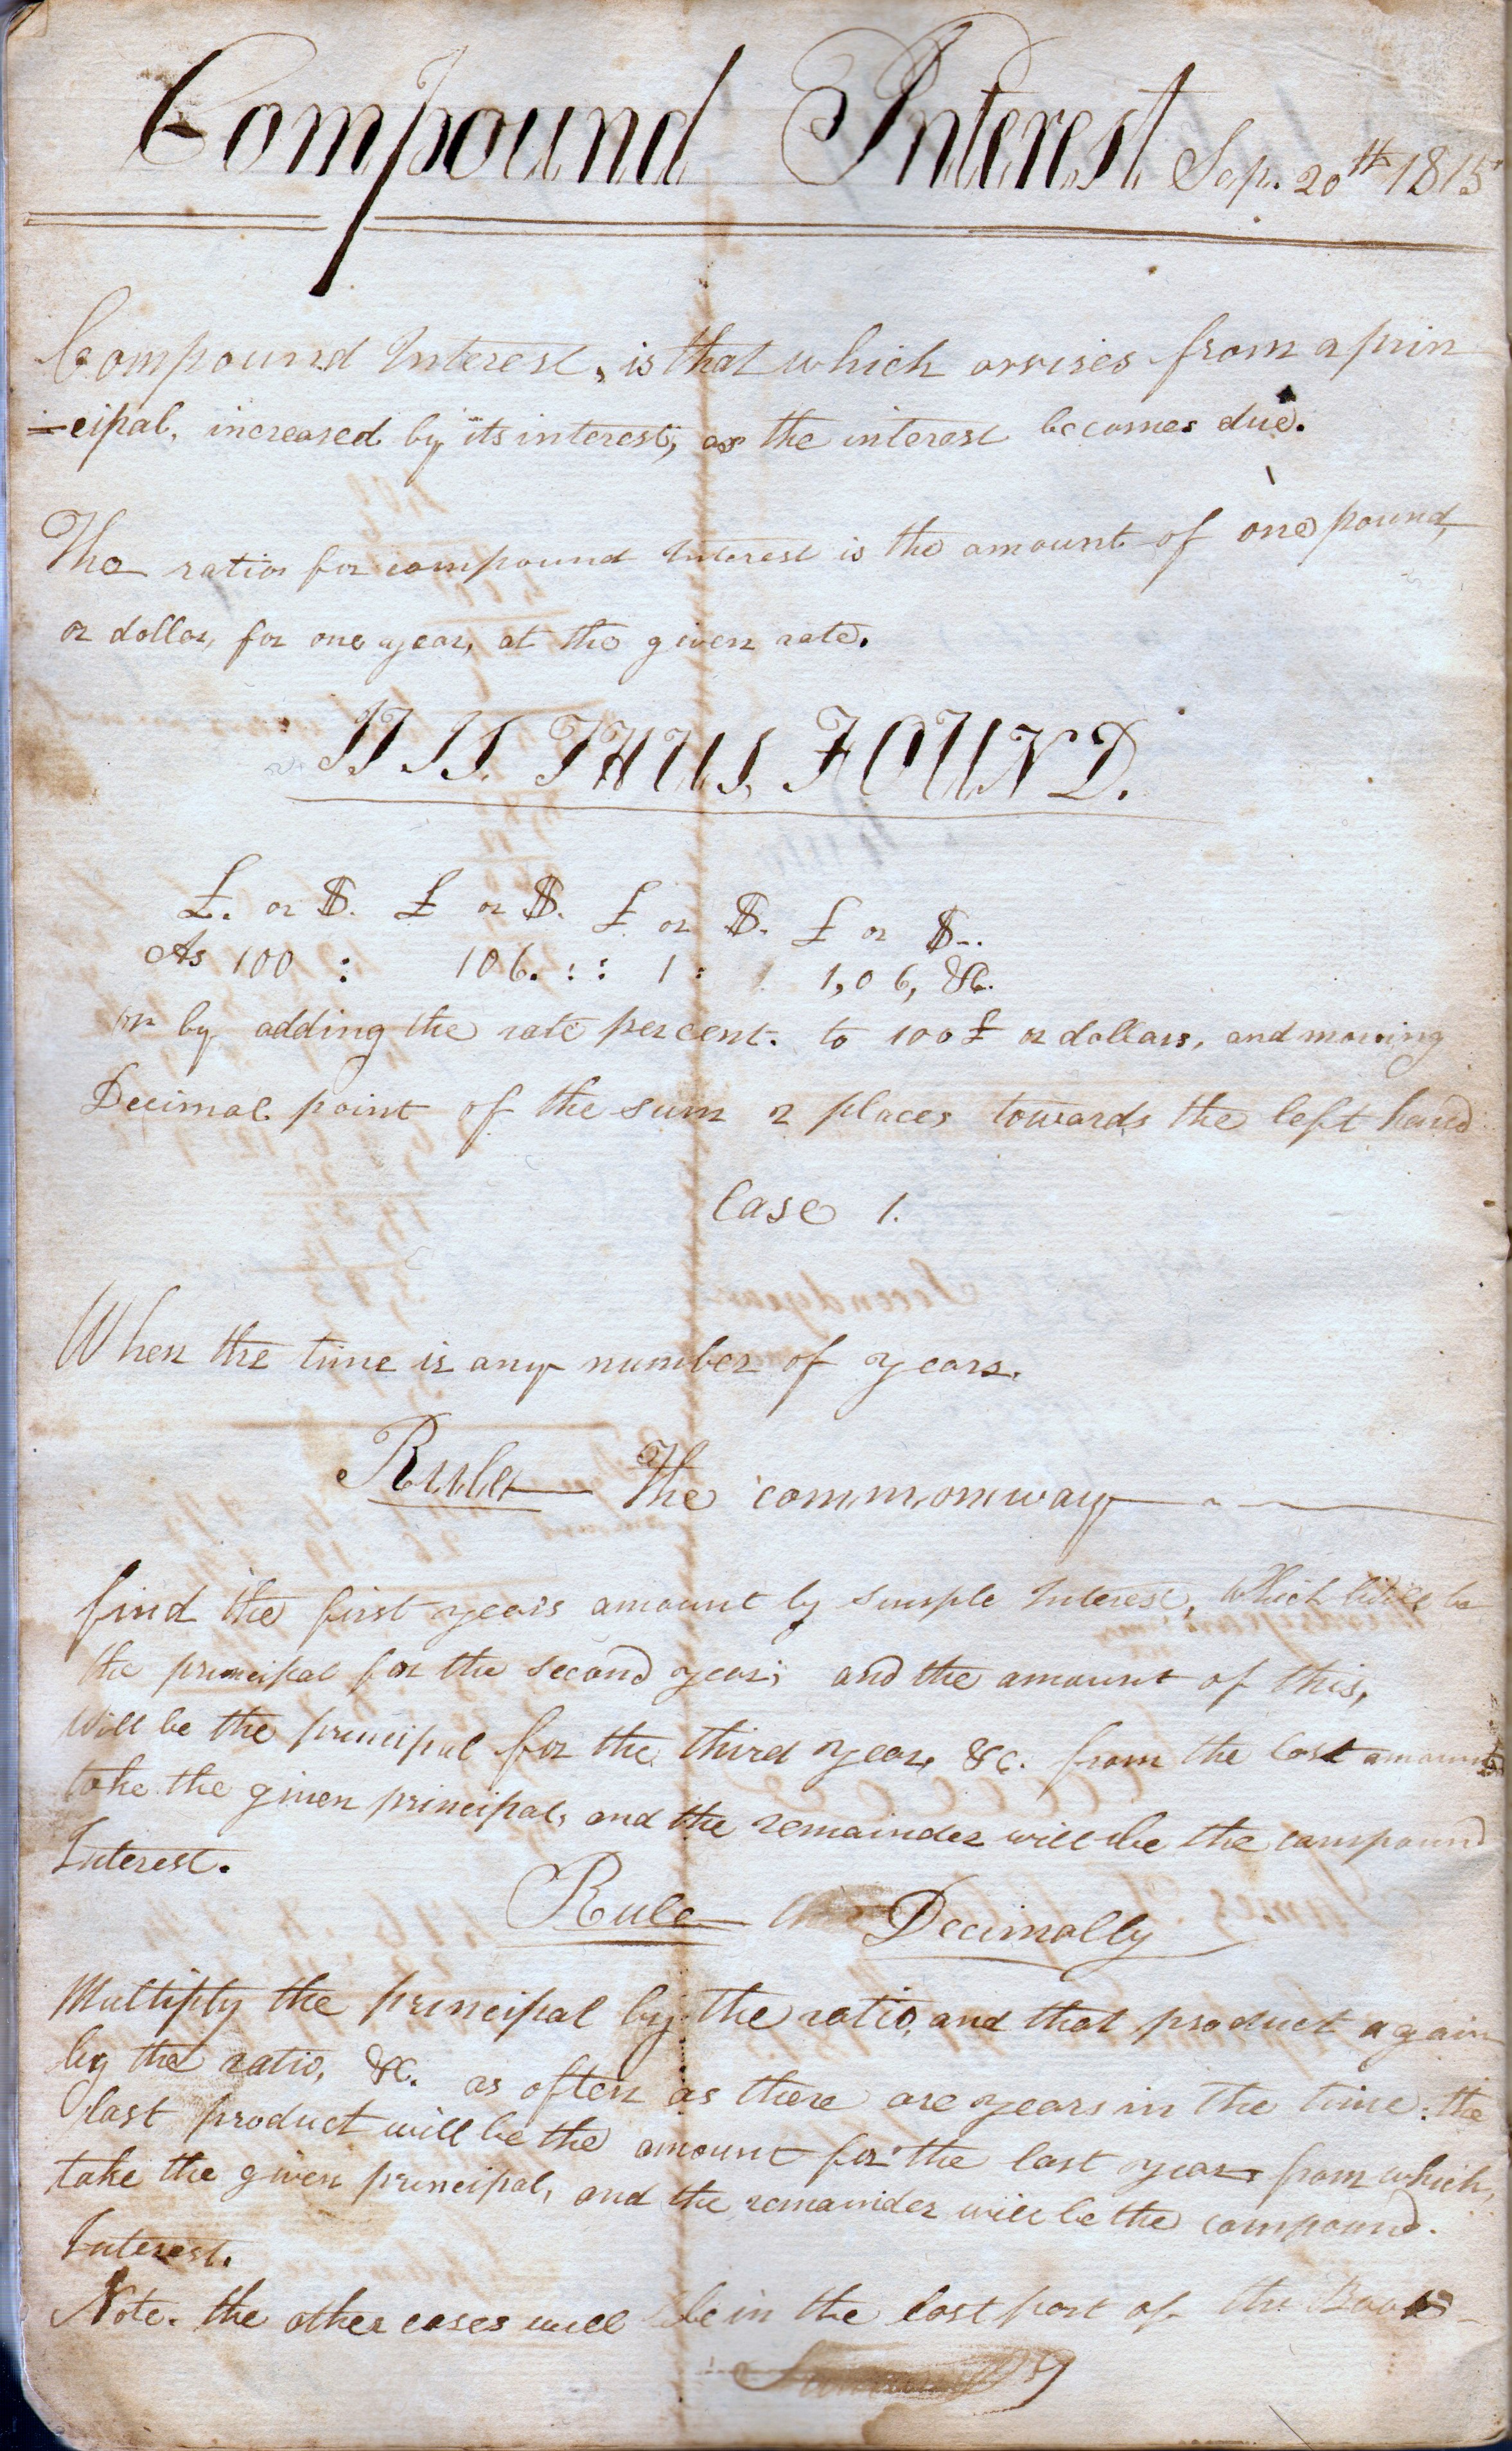 Compound Interest Sep. 20th 1815
Compound Interest, is that which arrises from a prin
=cipal, increased by its interest, as the interest becomes due.
The ratio for compound Interest is the amount of one pound,
or dollar, for one year, at the given rate.
IT IS THUS FOUND.
£. or $. £ or $. £ or $. £ or $..
As 100 : 106. :: 1 : 1,06, &c.
or by adding the rate per cent. to 100£ or dollars, and moving
Decimal point of the sum 2 places towards the left hand
Case 1.
When the time is any number of years.
Rule The common way
find the first years amount by simple Interest, which will be
the principal for the second year; and the amount of this,
will be the principal for the third year, &c. from the last amount
take the given principal, and the remainder will be the compound
Interest.
Rule Decimally
Multiply the principal by the ratio, and that product again
by the ratio, &c. as often as there are years in the time: the
last product will be the amount for the last year from which,
take the given principal, and the remainder will be the compound.
Interest.
Note. the other cases will be in the last part of the Book